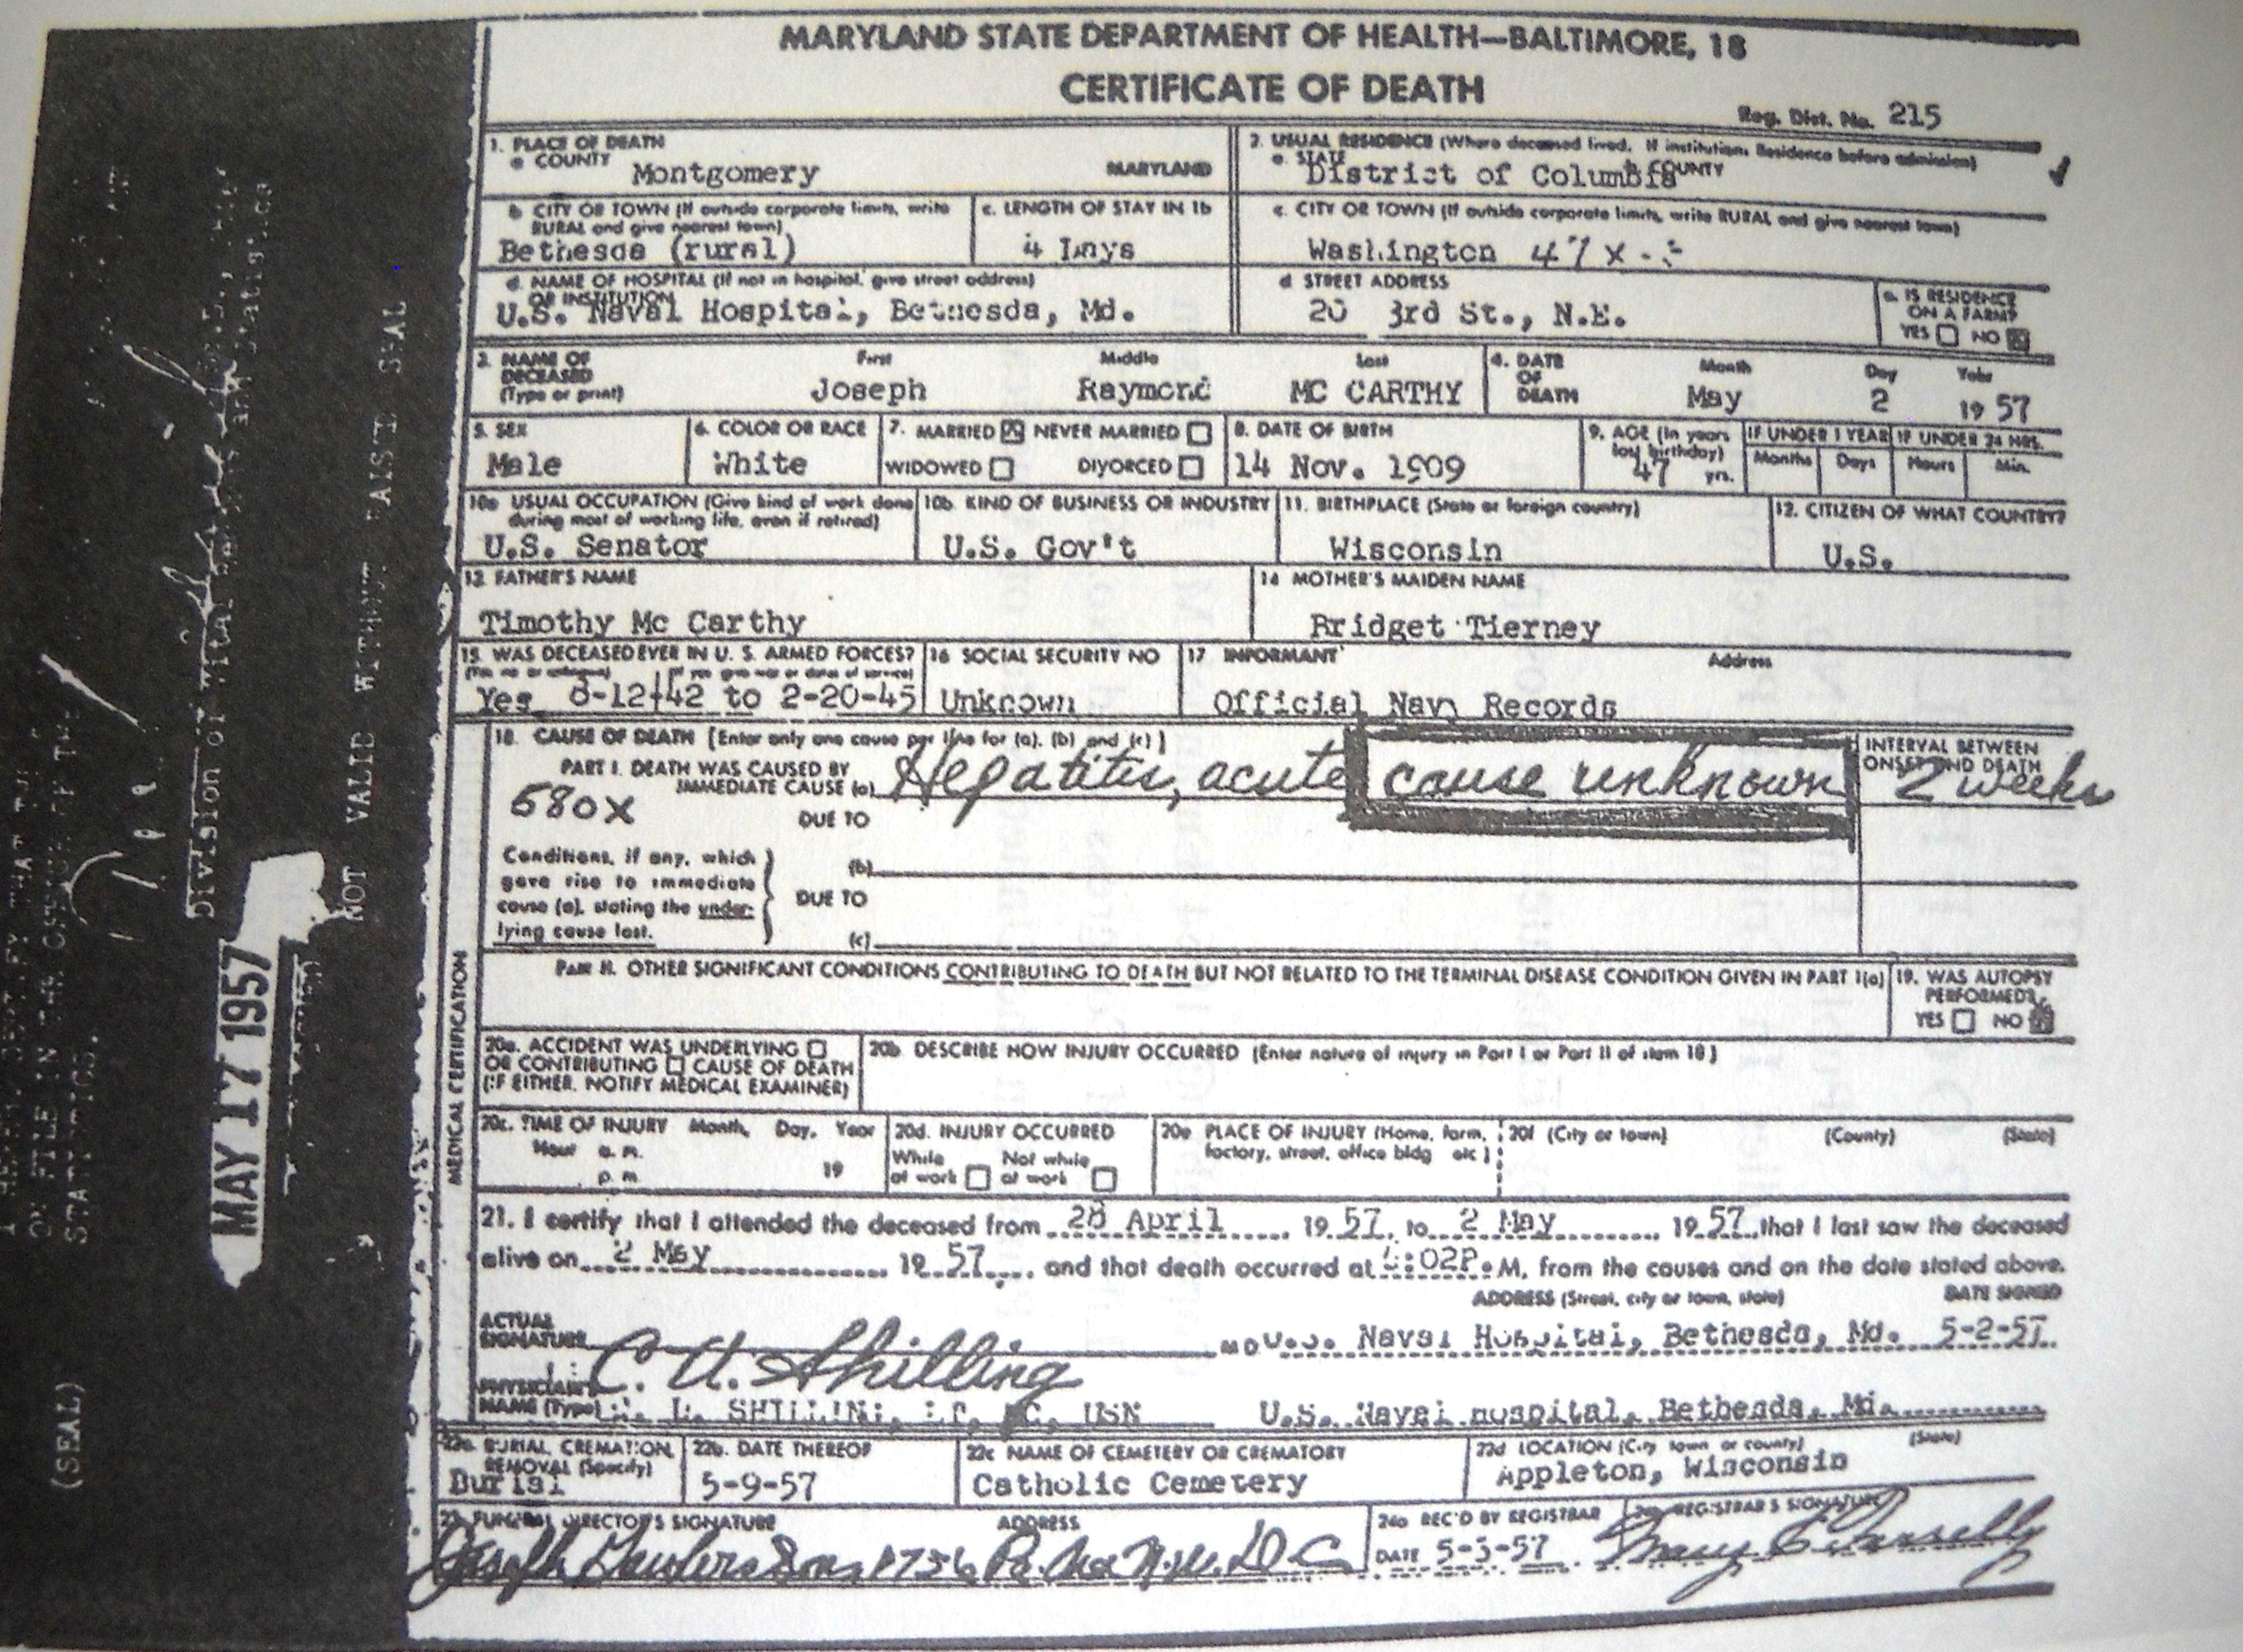 MARYLAND STATE DEPARTMENT OF HEALTH—BALTIMORE, 18
CERTIFICATE OF DEATH
Reg. Dist. No. 215
1. PLACE OF DEATH
a COUNTY Montgomery MARYLAND
2. USUAL RESIDENCE (Where deceased lived. If institution: Residence before admission)
a. STATE District of Columbia b COUNTY
b CITY OR TOWN (If outside corporate limits, write RURAL and give nearest town)
Bethesda (rural)
c. LENGTH OF STAY IN 1b
4 Days
c. CITY OR TOWN (If outside corporate limits, write RURAL and give nearest town)
Washington 47x
d. NAME OF HOSPITAL (If not in hospital, give street address)
OR INSTITUTION
U.S. Naval Hospital, Bethesda, Md.
d STREET ADDRESS
20 3rd St., N.E.
e. IS RESIDENCE ON A FARM?
YES NO
3. NAME OF DECEASED (Type or print)
First Middle Last
Joseph Raymond MC CARTHY
4. DATE OF DEATH
Month Day Year
May 2 1957
5. SEX
Male
6. COLOR OR RACE
White
7. MARRIED NEVER MARRIED
WIDOWED DIVORCED
8. DATE OF BIRTH
14 Nov. 1909
9. AGE (In years last birthday)
47 yrs.
IF UNDER 1 YEAR IF UNDER 24 HRS.
Months Days Hours Min.
10a USUAL OCCUPATION (Give kind of work done during most of working life, even if retired)
U.S. Senator
10b. KIND OF BUSINESS OR INDUSTRY
U.S. Gov't
11. BIRTHPLACE (State or foreign country)
Wisconsin
12. CITIZEN OF WHAT COUNTRY?
U.S.
13. FATHER'S NAME
Timothy Mc Carthy
14 MOTHER'S MAIDEN NAME
Bridget Tierney
15. WAS DECEASED EVER IN U. S. ARMED FORCES?
(If yes, give war or dates of service)
Yes 8-12-42 to 2-20-45
16 SOCIAL SECURITY NO
Unknown
17 INFORMANT Address
Official Navy Records
MEDICAL CERTIFICATION
18. CAUSE OF DEATH [Enter only one cause per line for (a), (b) and (c)]
PART I. DEATH WAS CAUSED BY
IMMEDIATE CAUSE (a) Hepatitis, acute cause unknown
INTERVAL BETWEEN ONSET AND DEATH
2 weeks
580X
DUE TO
Conditions, if any, which gave rise to immediate cause (a), stating the underlying cause last.
(b)
DUE TO
(c)
PART II. OTHER SIGNIFICANT CONDITIONS CONTRIBUTING TO DEATH BUT NOT RELATED TO THE TERMINAL DISEASE CONDITION GIVEN IN PART I(a)
19. WAS AUTOPSY PERFORMED?
YES NO
20a. ACCIDENT WAS UNDERLYING
OR CONTRIBUTING CAUSE OF DEATH
(IF EITHER, NOTIFY MEDICAL EXAMINER)
20b DESCRIBE HOW INJURY OCCURRED (Enter nature of injury in Part I or Part II of item 18)
20c. TIME OF INJURY Month, Day, Year
Hour a. m.
p. m. 19
20d. INJURY OCCURRED
While at work Not while at work
20e PLACE OF INJURY (Home, farm, factory, street, office bldg etc)
20f (City or town) (County) (State)
21. I certify that I attended the deceased from 28 April 1957, to 2 May 1957, that I last saw the deceased
alive on 2 May 1957, and that death occurred at :02P.M, from the causes and on the date stated above.
ADDRESS (Street, city or town, state) DATE SIGNED
ACTUAL SIGNATURE C. U. Shilling MD U.S. Naval Hospital, Bethesda, Md. 5-2-57
PHYSICIAN'S NAME (Type) USN U.S. Naval Hospital, Bethesda, Md.
22a. BURIAL, CREMATION, REMOVAL (Specify)
Burial
22b. DATE THEREOF
5-9-57
22c NAME OF CEMETERY OR CREMATORY
Catholic Cemetery
22d LOCATION (City town or county) (State)
Appleton, Wisconsin
23. FUNERAL DIRECTOR'S SIGNATURE ADDRESS
Joseph Gawler's Sons 1756 Pa. Ave N.W. D.C.
24a REC'D BY REGISTRAR
DATE 5-3-57
24b REGISTRAR'S SIGNATURE
ON FILE IN THE OFFICE OF THE
STATISTICS.
Division of Vital Records and Statistics
NOT VALID WITHOUT RAISED SEAL
MAY 17 1957
(SEAL)